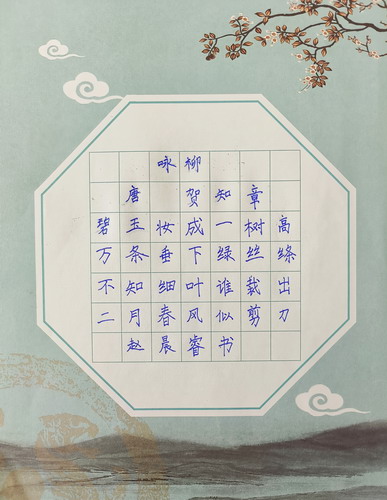 咏柳
唐 贺知章
碧玉妆成一树高
万条垂下绿丝绦
不知细叶谁裁出
二月春风似剪刀
赵晨睿书